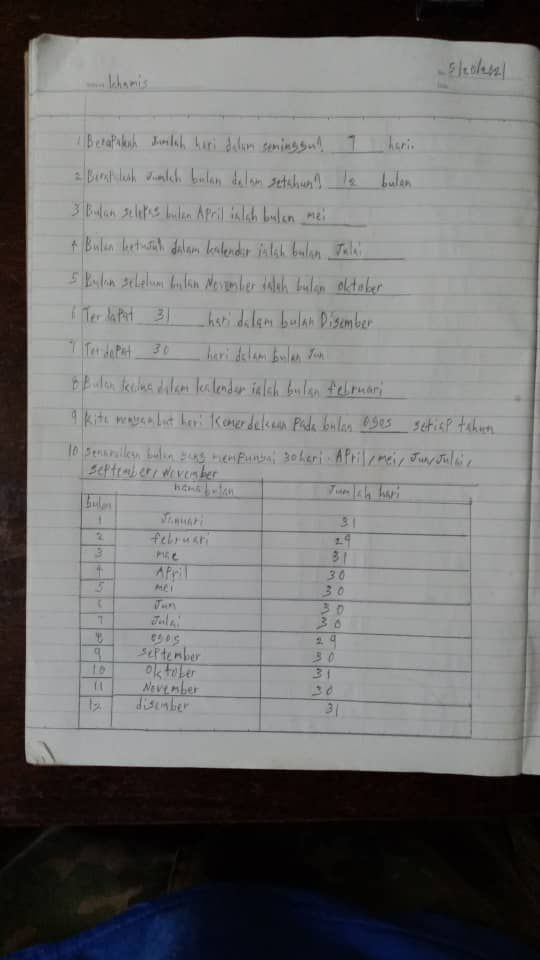 khamis
5/10/2021
1 Berapakah Jumlah hari dalam seminggu? 7 hari.
2 Berapakah Jumlah bulan dalam setahun? 12 bulan
3 Bulan selepas bulan April ialah bulan mei
4 Bulan ketujuh dalam kalendar ialah bulan Julai
5 Bulan sebelum bulan November ialah bulan oktober
6 Terdapat 31 hari dalam bulan Disember
7 Terdapat 30 hari dalam bulan Jun
8 Bulan kedua dalam kalendar ialah bulan februari
9 Kita menyambut hari Kemerdekaan Pada bulan ogos setiap tahun
10 Senaraikan bulan yang mempunyai 30 hari. April, mei, Jun, Julai,
September, November
bulan nama bulan Jumlah hari
1 Januari 31
2 februari 29
3 mac 31
4 April 30
5 mei 30
6 Jun 30
7 Julai 30
8 ogos 29
9 september 30
10 oktober 31
11 November 30
12 disember 31